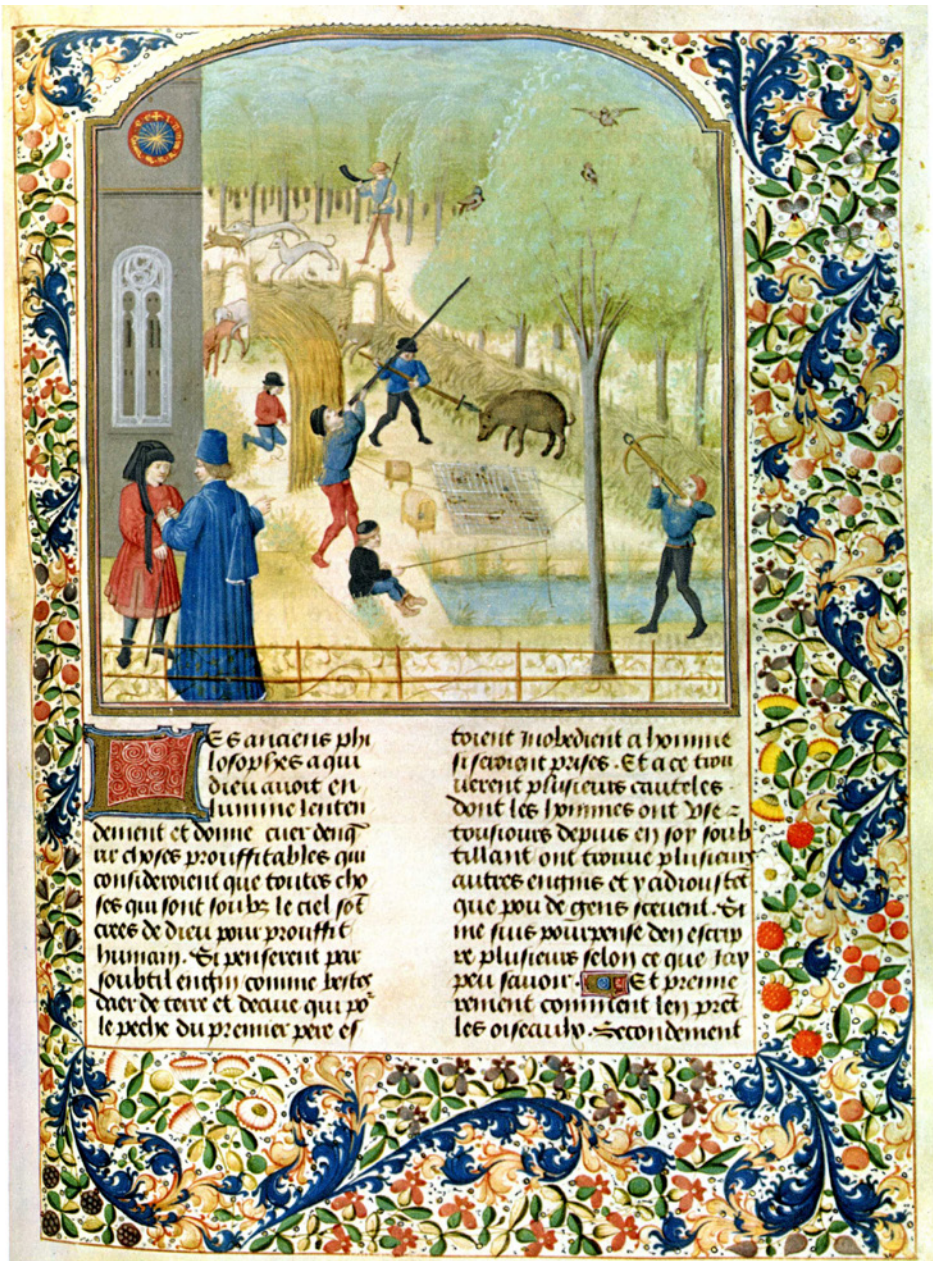 Es anciens phi
losophes a qui
dieu auoit en
lumine lenten
dement et donne cuer denq̄
rir choses prouffitables qui
consideroient que toutes cho
ses qui sont soubz le ciel sōt
crees de dieu pour prouffit
humain. Si penserent par
soubtil engin comme bestes
dair de terre et deaue qui po᷑
le peche du premier pere es
toient Inobedient a homme
si seroient prises. Et a ce trou
uerent plusieurs cauteles
dont les hommes ont vse z
tousiours depuis en soy soub
tillant ont trouue plusieurs
autres engins et y adioustēt
que pou de gens sceuent. Si
me suis pourpense den escrip
re plusieurs selon ce que Iay
peu sauoir. Et premie
rement comment len prēt
les oiseaulx. Secondement